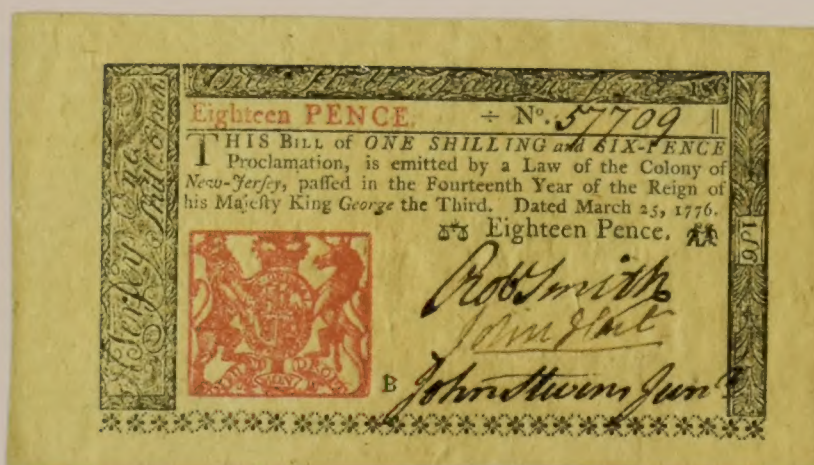 One Shilling and Six Pence 1s6
Eighteen PENCE. ÷ No. 57709
THIS BILL of ONE SHILLING and SIX-PENCE
Proclamation, is emitted by a Law of the Colony of
New-Jerſey, paſſed in the Fourteenth Year of the Reign of
his Majeſty King George the Third. Dated March 25, 1776.
Eighteen Pence.
Robt Smith
John Hart
B John Stevens Junr
1ſ6